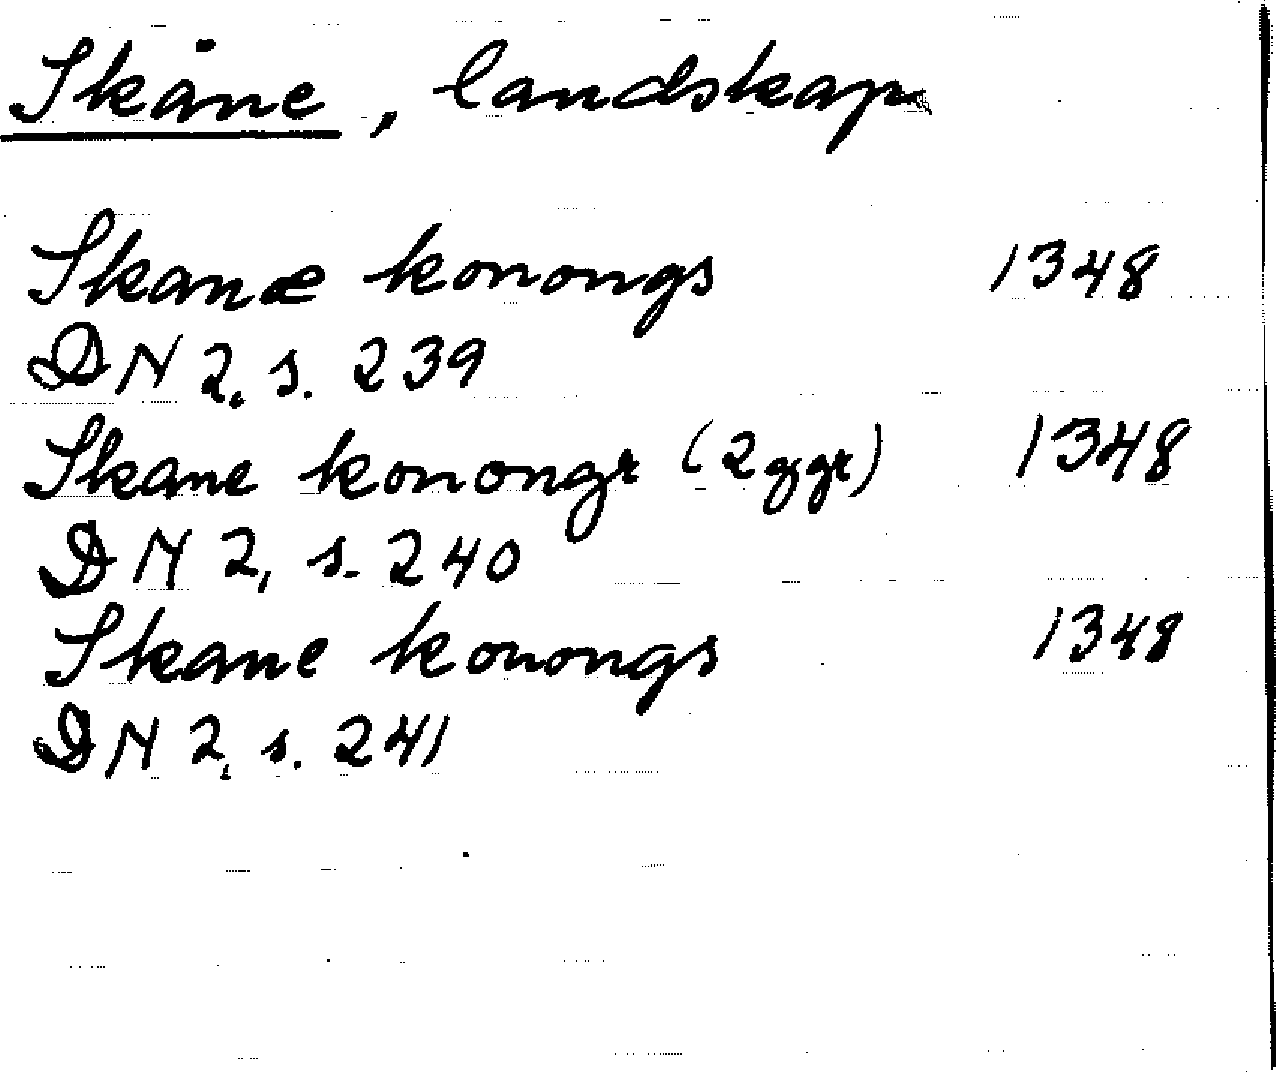 Skåne, landskap
Skanæ konongs 1348
DN 2, s. 239
Skane konongr (2 ggr) 1348
DN 2, s. 240
Skane konongs 1348
DN 2, s. 241